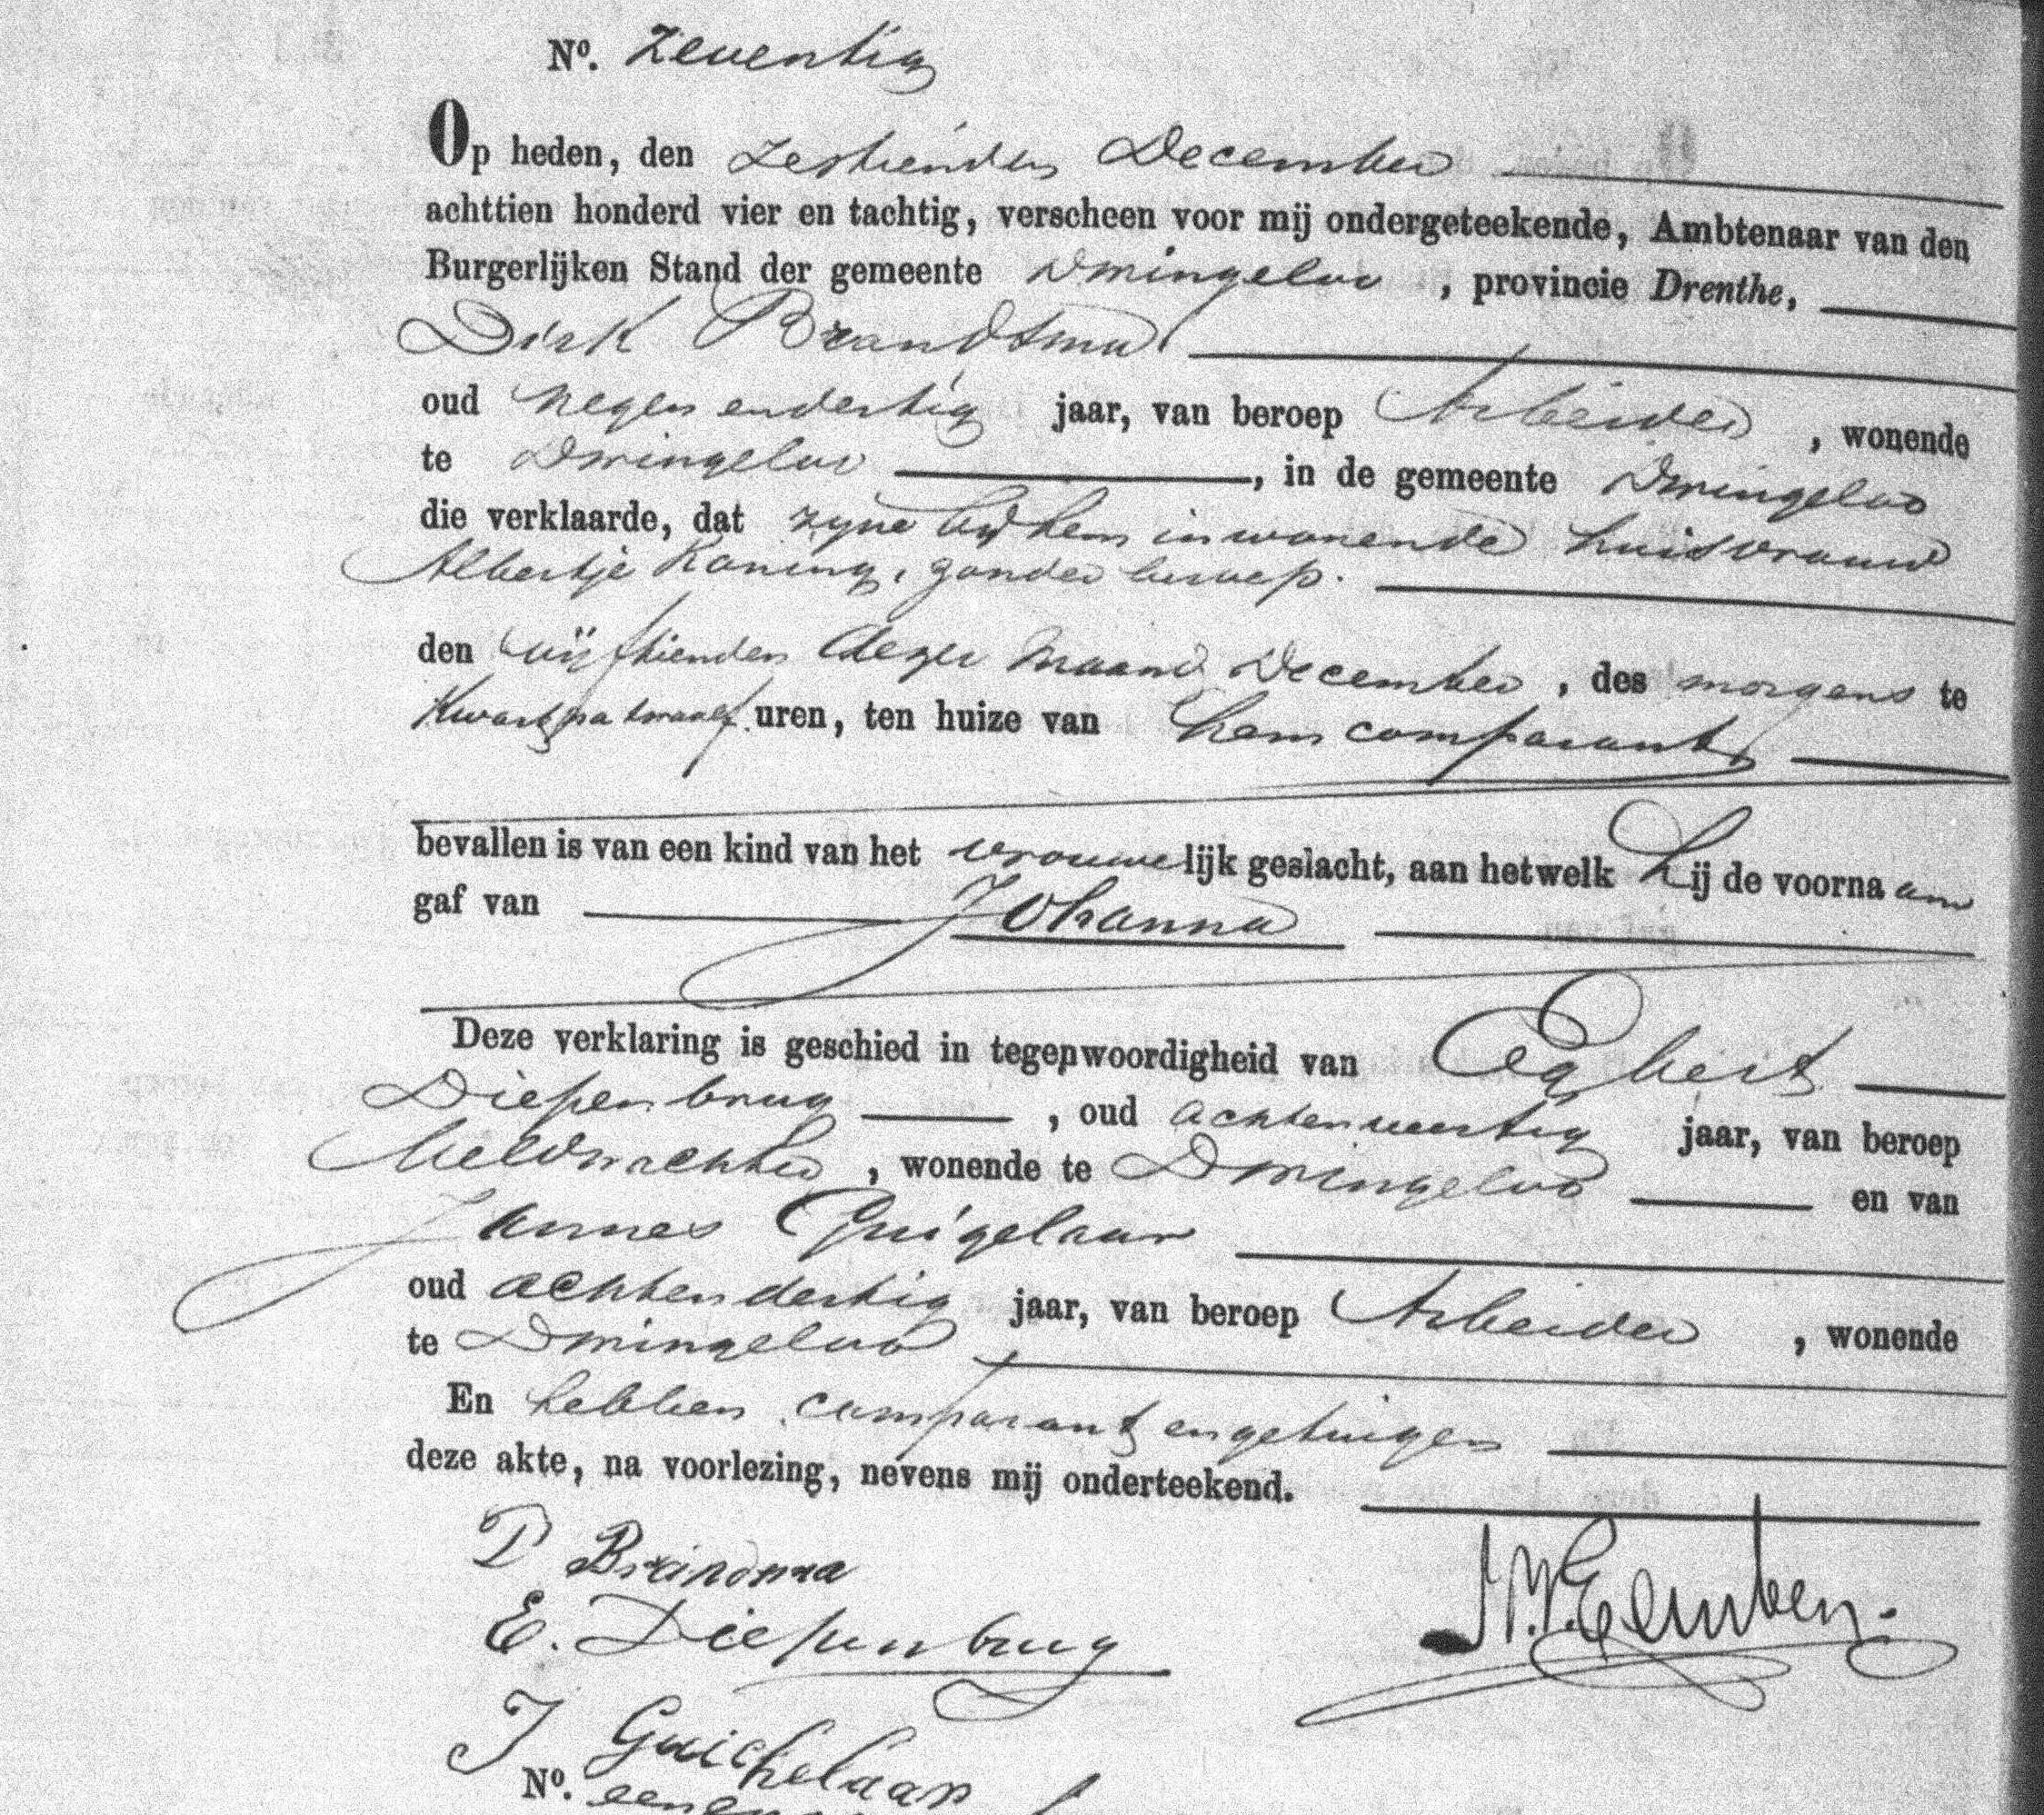 Nº. Zeventig
Op heden, den zestienden December
achttien honderd vier en tachtig, verscheen voor mij ondergeteekende, Ambtenaar van den
Burgerlijken Stand der gemeente Dwingeloo , provincie Drenthe,
Dirk Brandsma
oud negenendertig jaar, van beroep Arbeider , wonende
te Dwingeloo , in de gemeente Dwingeloo
die verklaarde, dat zyne by hem inwonende huisvrouw
Albertje Koning, zonder beroep.
den vijftienden dezer maand December , des morgens te
Kwart na twaalf uren, ten huize van hem comparant
bevallen is van een kind van het vrouwelijk geslacht, aan hetwelk hij de voornaam
gaf van Johanna
Deze verklaring is geschied in tegenwoordigheid van Egbert
Diepenbrug , oud achtenveertig jaar, van beroep
Veldwachter , wonende te Dwingeloo en van
Jannes Guigelaar
oud achtendertig jaar, van beroep Arbeider , wonende
te Dwingeloo
En hebben comparant en getuigen
deze akte, na voorlezing, nevens mij onderteekend.
D Brandsma
E. Diepenbrug
J Guichelaar
Nº.